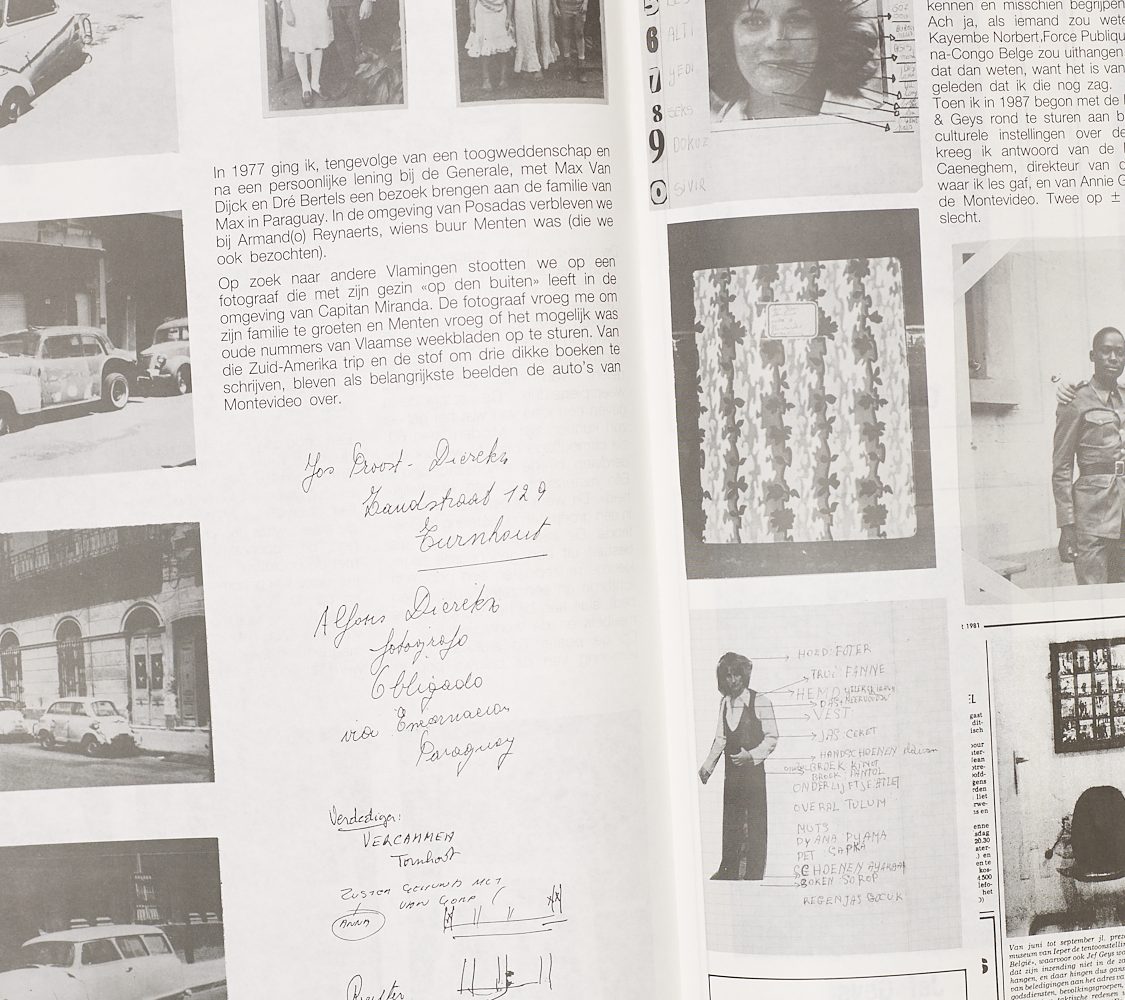 In 1977 ging ik, tengevolge van een toogweddenschap en
na een persoonlijke lening bij de Generale, met Max Van
Dijck en Dré Bertels een bezoek brengen aan de familie van
Max in Paraguay. In de omgeving van Posadas verbleven we
bij Armand(o) Reynaerts, wiens buur Menten was (die we
ook bezochten).
Op zoek naar andere Vlamingen stootten we op een
fotograaf die met zijn gezin «op den buiten» leeft in de
omgeving van Capitan Miranda. De fotograaf vroeg me om
zijn familie te groeten en Menten vroeg of het mogelijk was
oude nummers van Vlaamse weekbladen op te sturen. Van
die Zuid-Amerika trip en de stof om drie dikke boeken te
schrijven, bleven als belangrijkste beelden de auto's van
Montevideo over.
Jos Proost - Dierckx
Zandstraat 129
Turnhout
Alfons Dierckx
fotografo
Obligado
via Encarnacion
Paraguay
Verdediger:
VERCAMMEN
Turnhout
ZUSTER GEHUWD MET
VAN GORP
ANNA
6
ALTI
7
YEDI
8
SEKS
9
DOKUZ
0
SIVIR
HOED: FOTER
TRUI FANNE
HEMD
VEST
JAS CEKET
HANDSCHOENEN
BROEK PANTOL
ONDERLIJFTJE: ATLET
OVERAL TULUM
MUTS
PYAMA PYAMA
PET SAPKA
SCHOENEN
SOKEN SOROP
REGENJAS GOCUK
kennen en misschien begrijpen
Ach ja, als iemand zou wete
Kayembe Norbert, Force Publiqu
na-Congo Belge zou uithangen
dat dan weten, want het is van
geleden dat ik die nog zag.
Toen ik in 1987 begon met de
& Geys rond te sturen aan b
culturele instellingen over de
kreeg ik antwoord van de
Caeneghem, direkteur van d
waar ik les gaf, en van Annie G
de Montevideo. Twee op ±
slecht.
1981
Van juni tot september jl. prez
museum van Ieper de tentoonstellin
België», waarvoor ook Jef Geys wa
dat zijn inzending niet in de za
hangen, en daar hingen dus gans
van beledigingen aan het adres va
godsdiensten, bevolkingsgroepen,
taktische redenen